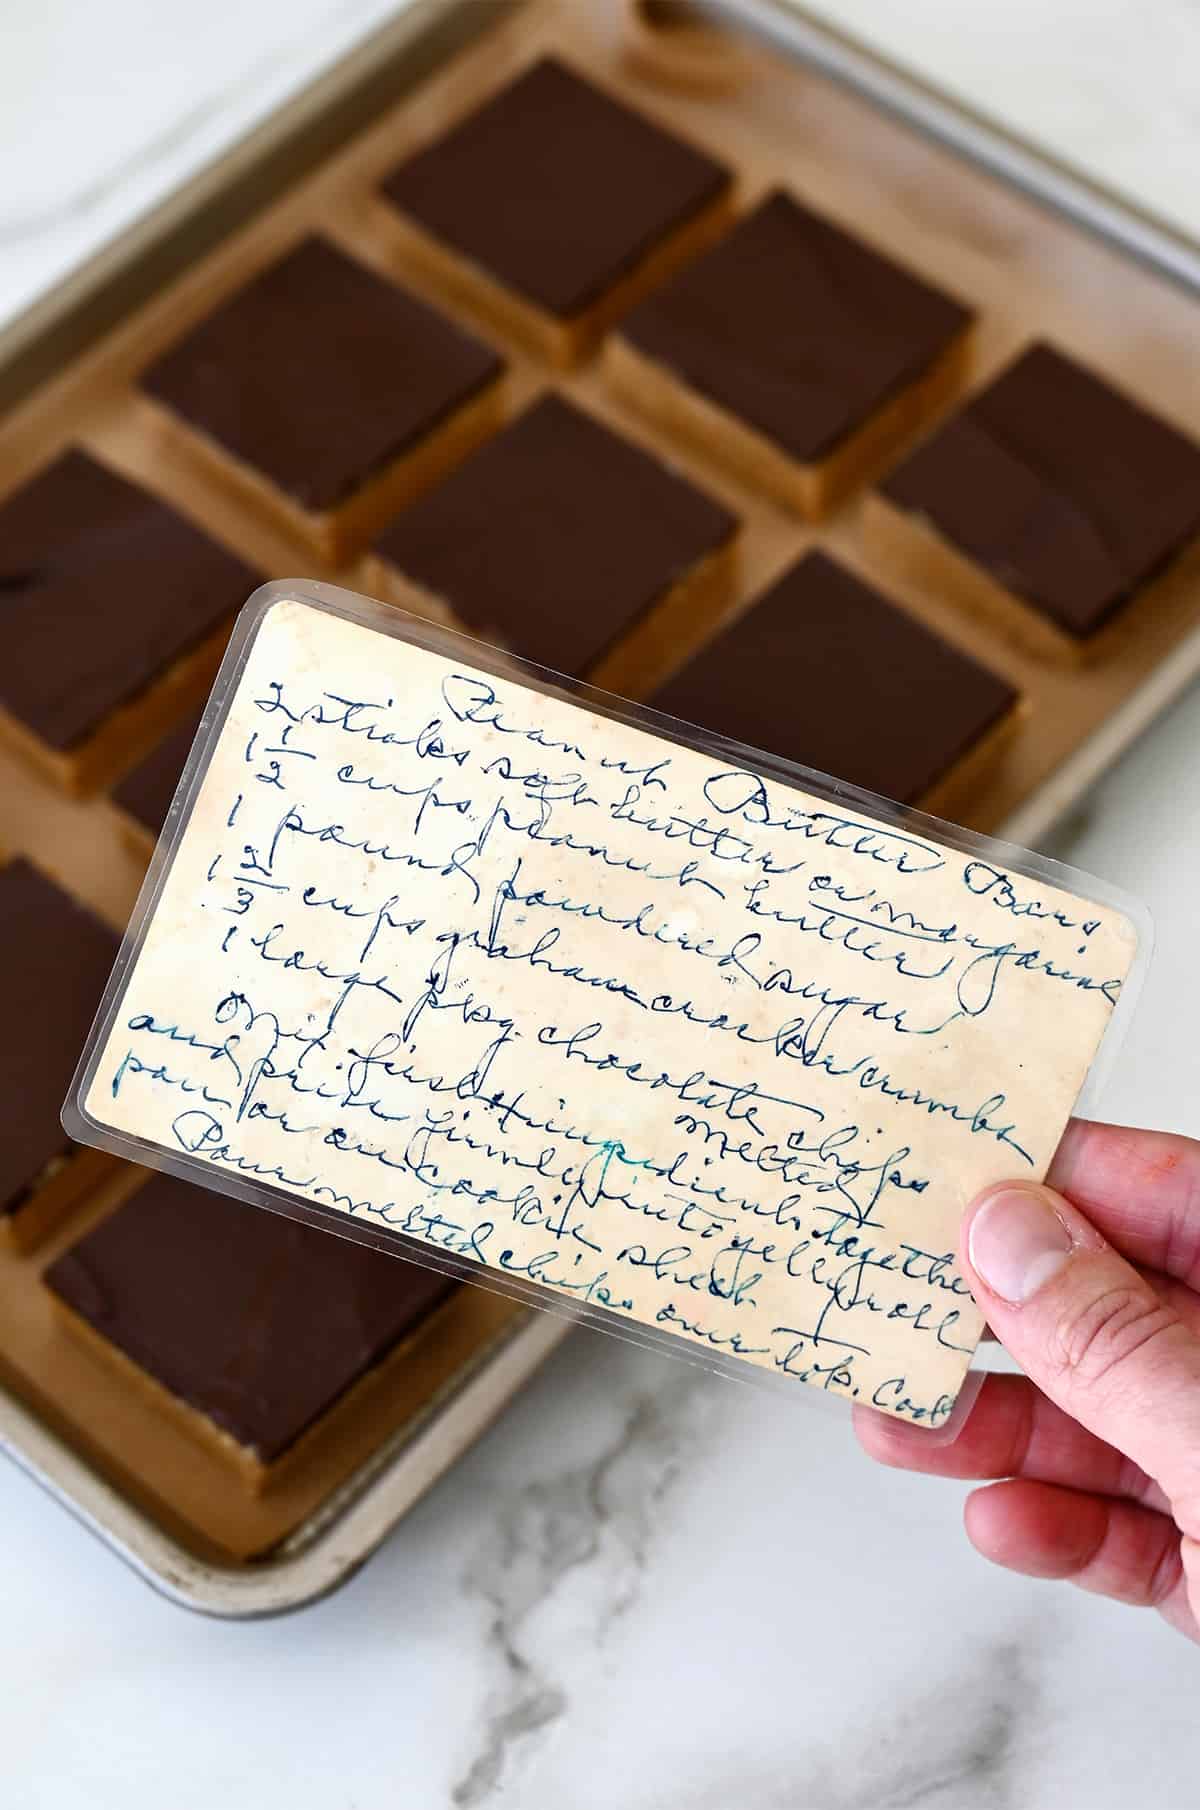 Peanut Butter Bars
2 sticks soft butter or margarine
1 1/2 cups peanut butter
1 pound powdered sugar
1 2/3 cups graham cracker crumbs
1 large pkg. chocolate chips
melted
Mix first 4 ingredients together
and press firmly into jelly roll
pan or on cookie sheet
Pour melted chips over top. Cool